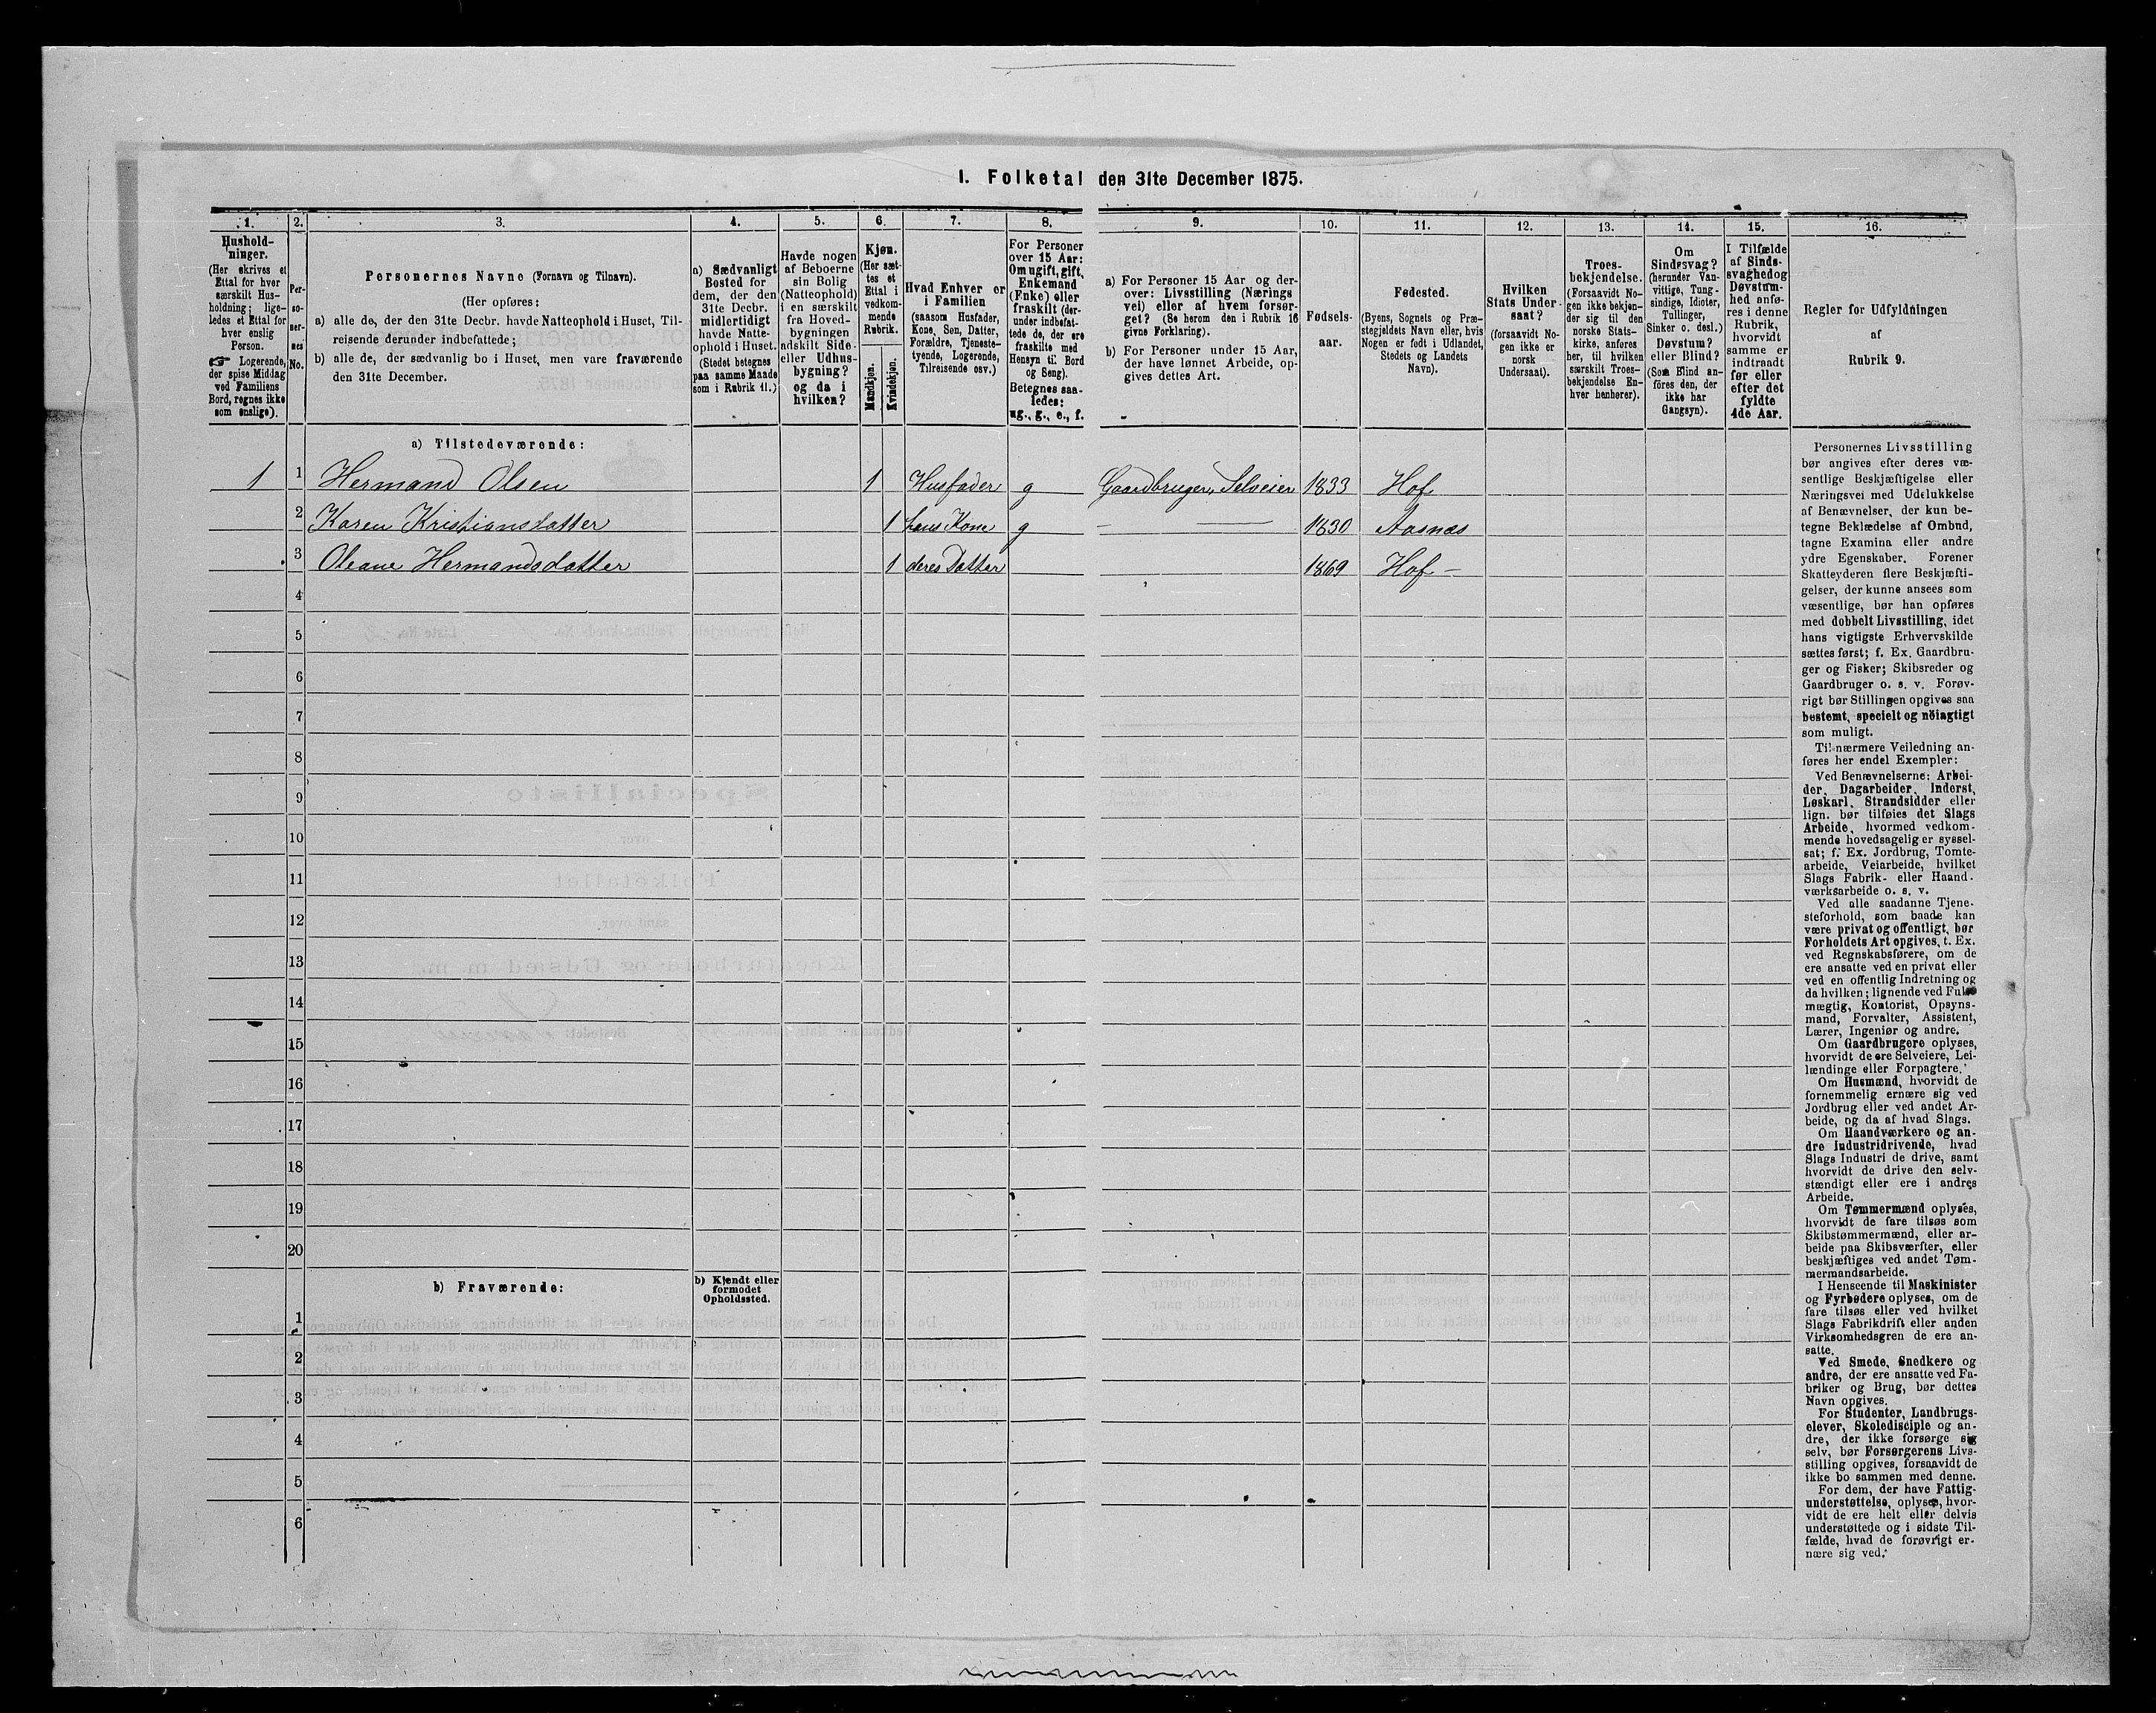 I. Folketal den 31te December 1875.
1. 2. 3. 4. 5. 6. 7. 8. 9. 10. 11. 12. 13. 14. 15. 16.
Hushold-
ninger.
(Her skrives et
Ettal for hver
særskilt Hus-
holdning; lige-
ledes et Ettal for
hver enslig
Person.
☞ Logerende,
der spise Middag
ved Familiens
Bord, regnes ikke
som enslige).
Per-
so-
ner-
nes
No.
Personernes Navne (Fornavn og Tilnavn).
(Her opføres:
a) alle de, der den 31te Decbr. havde Natteophold i Huset, Til-
reisende derunder indbefattede;
b) alle de, der sædvanlig bo i Huset, men vare fraværende
den 31te December.
a) Sædvanligt
Bosted for
dem, der den
31te Decbr.
midlertidigt
havde Natte-
ophold i Huset.
(Stedet betegnes
paa samme Maade
som i Rubrik 11.)
Havde nogen
af Beboerne
sin Bolig
(Natteophold)
i en særskilt
fra Hoved-
bygningen
adskilt Side-
eller Udhus-
bygning?
og da i
hvilken?
Kjøn.
(Her sæt-
tes et
Ettal i
vedkom-
mende
Rubrik.
Mandkjøn.
Kvindekjøn.
Hvad Enhver er
i Familien
(saasom Husfader,
Kone, Søn, Datter,
Forældre, Tjeneste-
tyende, Logerende,
Tilreisende osv.)
For Personer
over 15 Aar:
Om ugift, gift,
Enkemand
(Enke) eller
fraskilt (der-
under indbefat-
tede de, der ere
fraskilte med
Hensyn til Bord
og Seng).
Betegnes saa-
ledes:
ug., g., e., f.
a) For Personer 15 Aar og der-
over: Livsstilling (Nærings
vei) eller af hvem forsør-
get? (Se herom den i Rubrik 16
givne Forklaring).
b) For Personer under 15 Aar,
der have lønnet Arbeide, op-
gives dettes Art.
Fødsels-
aar.
Fødested.
(Byens, Sognets og Præ-
stegjeldets Navn eller, hvis
Nogen er født i Udlandet,
Stedets og Landets
Navn).
Hvilken
Stats Under-
saat?
(forsaavidt No-
gen ikke er
norsk
Undersaat).
Troes-
bekjendelse.
(Forsaavidt No-
gen ikke bekjen-
der sig til den
norske Stats-
kirke, anføres
her, til hvilken
særskilt Troes-
bekjendelse En-
hver henhører).
Om
Sindssvag?
(herunder Van-
vittige, Tung-
sindige, Idioter,
Tullinger,
Sinker o. desl.)
Døvstum?
eller Blind?
(Som Blind an-
føres den, der
ikke har
Gangsyn).
I Tilfælde
af Sinds-
svaghed og
Døvstum-
hed anfø-
res i denne
Rubrik,
hvorvidt
samme er
indtraadt
før eller
efter det
fyldte
4de Aar.
Regler for Udfyldningen
af
Rubrik 9.
a) Tilstedeværende:
1 1 Hermand Olsen 1 Husfader g Gaardbruger, Selveier 1833 Hof
2 Karen Kristiansdatter 1 hans Kone g — — 1830 Aasnæs
3 Oleane Hermandsdatter 1 deres Datter 1869 Hof —
4
5
6
7
8
9
10
11
12
13
14
15
16
17
18
19
20
b) Fraværende:
b) Kjendt eller
formodet
Opholdssted.
1
2
3
4
5
6
Personernes Livsstilling
bør angives efter deres væ-
sentlige Beskjæftigelse eller
Næringsvei med Udelukkelse
af Benævnelser, der kun be-
tegne Beklædelse af Ombud,
tagne Examina eller andre
ydre Egenskaber. Forener
Skatteyderen flere Beskjæfti-
gelser, der kunne ansees som
væsentlige, bør han opføres
med dobbelt Livsstilling, idet
hans vigtigste Erhvervskilde
sættes først; f. Ex. Gaardbru-
ger og Fisker; Skibsreder og
Gaardbruger o. s. v. Forøv-
rigt bør Stillingen opgives saa
bestemt, specielt og nöiagtigt
som muligt.
Til nærmere Veiledning an-
føres her endel Exempler:
Ved Benævnelserne: Arbei-
der, Dagarbeider, Inderst,
Løskarl, Strandsidder eller
lign. bør tilføies det Slags
Arbeide, hvormed vedkom-
mende hovedsagelig er syssel-
sat; f. Ex. Jordbrug, Tomte-
arbeide, Veiarbeide, hvilket
Slags Fabrik- eller Haand-
værksarbeide o. s. v.
Ved alle saadanne Tjene-
steforhold, som baade kan
være privat og offentligt, bør
Forholdets Art opgives, t. Ex.
ved Regnskabsførere, om de
ere ansatte ved en privat eller
ved en offentlig Indretning og
da hvilken; lignende ved Fuld-
mægtig, Kontorist, Opsyns-
mand, Forvalter, Assistent,
Lærer, Ingeniør og andre.
Om Gaardbrugere oplyses,
hvorvidt de ere Selveiere, Lei-
lændinge eller Forpagtere.
Om Husmænd, hvorvidt de
fornemmelig ernære sig ved
Jordbrug eller ved andet Ar-
beide, og da af hvad Slags.
Om Haandværkere og an-
dre Industridrivende, hvad
Slags Industri de drive, samt
hvorvidt de drive den selv-
stændigt eller ere i andres
Arbeide.
Om Tømmermænd oplyses,
hvorvidt de fare tilsøs som
Skibstømmermænd, eller ar-
beide paa Skibsværfter, eller
beskjæftiges ved andet Tøm-
mermandsarbeide.
I Henseende til Maskinister
og Fyrbødere oplyses, om de
fare tilsøs eller ved hvilket
Slags Fabrikdrift eller anden
Virksomhedsgren de ere an-
satte.
Ved Smede, Snedkere og
andre, der ere ansatte ved Fa-
briker og Brug, bør dettes
Navn opgives.
For Studenter, Landbrugs-
elever, Skoledisciple og an-
dre, der ikke forsørge sig
selv, bør Forsørgerens Livs-
stilling opgives, forsaavidt de
ikke bo sammen med denne.
For dem, der have Fattig-
understøttelse, oplyses, hvor-
vidt de ere helt eller delvis
understøttede og i sidste Til-
fælde, hvad de forøvrigt er-
nære sig ved.